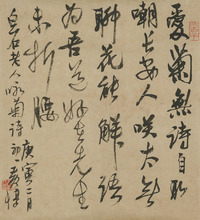 愛菊無詩自取
嘲長安人笑太無
聊花能解語
為吾道好在先生
未折腰
白石老人詠菊詩
庚寅二月